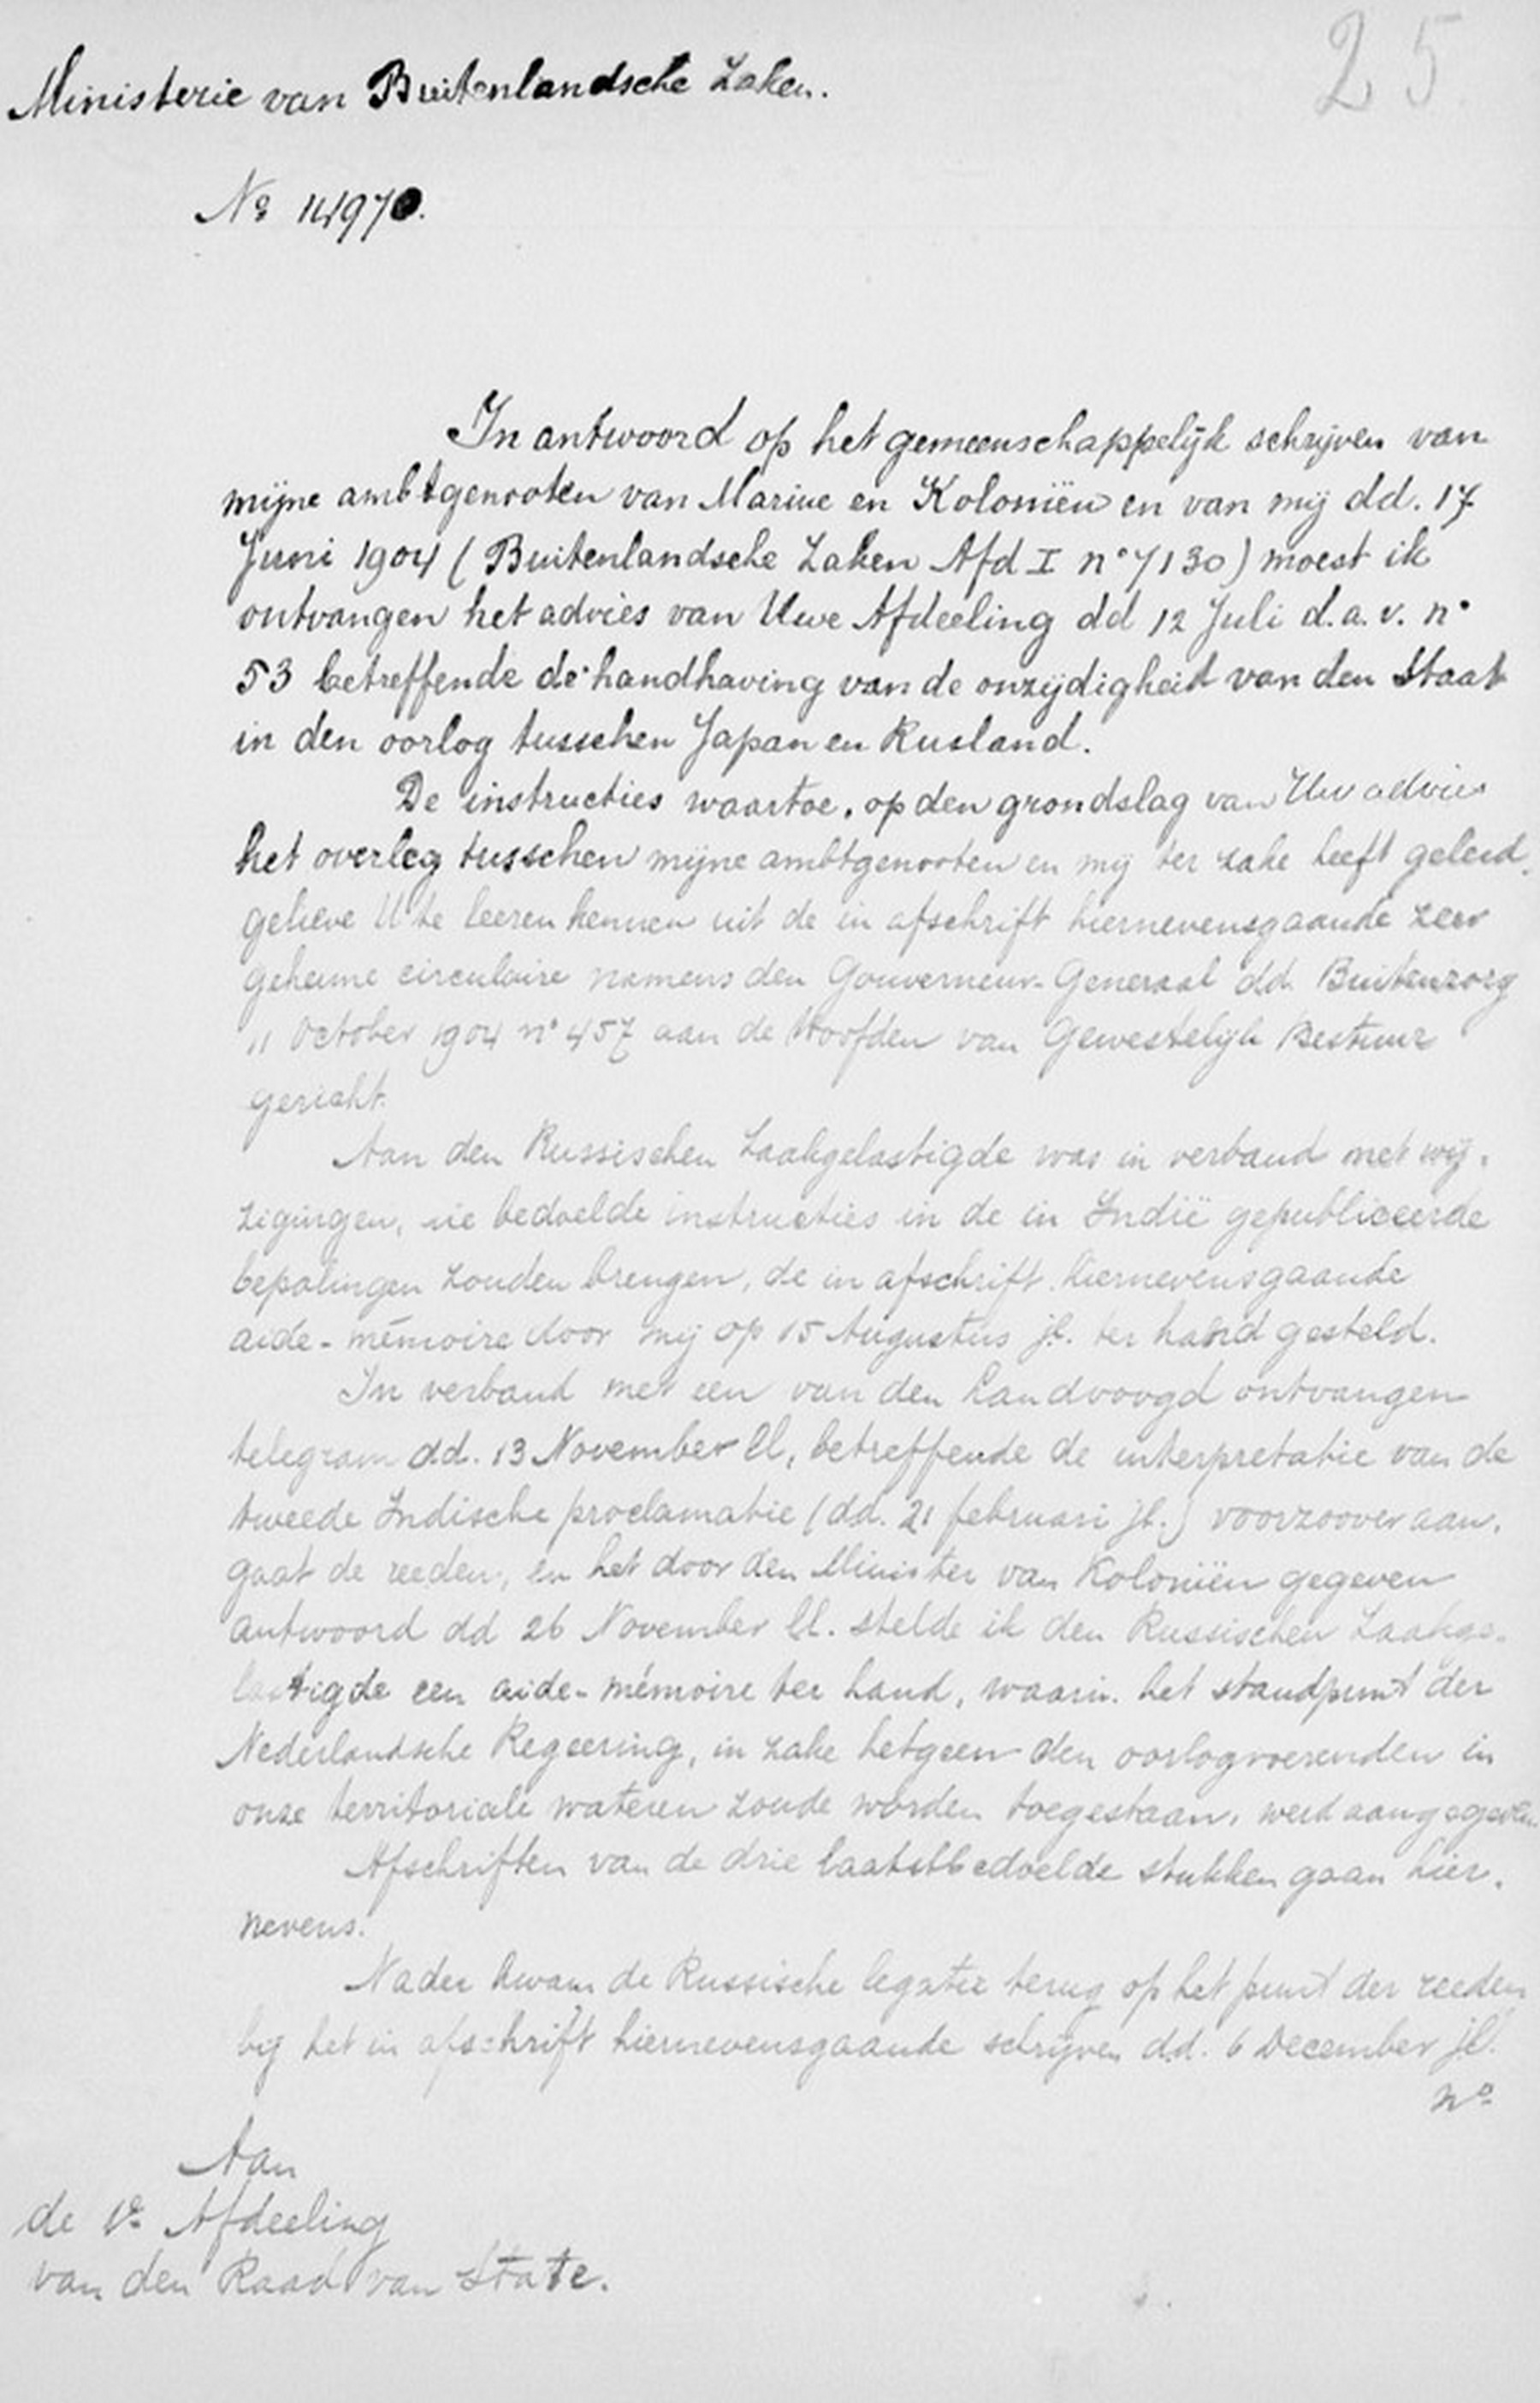 25
Ministerie van Buitenlandsche Zaken.
No 14970.
In antwoord op het gemeenschappelijk schrijven van
mijne ambtgenooten van Marine en Koloniën en van mij dd. 17
Juni 1904 (Buitenlandsche Zaken Afd I no 7130) moest ik
ontvangen het advies van Uwe Afdeeling dd 12 Juli d.a.v. no
53 betreffende de handhaving van de onzijdigheid van den Staat
in den oorlog tusschen Japan en Rusland.
De instructies waartoe, op den grondslag van Uw advies
het overleg tusschen mijne ambtgenooten en mij ter zake heeft geleid,
gelieve U te leeren kennen uit de in afschrift hiernevensgaande zeer
geheime circulaire namens den Gouverneur-Generaal dd. Buitenzorg
11 October 1904 no 457 aan de Hoofden van Gewestelijk Bestuur
gericht.
Aan den Russischen Zaakgelastigde was in verband met wij-
zigingen, die bedoelde instructies in de in Indië gepubliceerde
bepalingen zouden brengen, de in afschrift hiernevensgaande
aide-mémoire door mij op 15 Augustus jl. ter hand gesteld.
In verband met een van den Landvoogd ontvangen
telegram dd. 13 November ll, betreffende de interpretatie van de
tweede Indische proclamatie (dd. 21 februari jl.) voorzoover aan-
gaat de reeden, en het door den Minister van Koloniën gegeven
antwoord dd 26 November ll. stelde ik den Russischen Zaakge-
lastigde een aide-mémoire ter hand, waarin het standpunt der
Nederlandsche Regeering, in zake hetgeen den oorlogvoerenden in
onze territoriale wateren zoude worden toegestaan, werd aangegeven.
Afschriften van de drie laatstbedoelde stukken gaan hier-
nevens.
Nader kwam de Russische legatie terug op het punt der reeden
bij het in afschrift hiernevensgaande schrijven dd. 6 December jl.
no
Aan
de 1e Afdeeling
van den Raad van State.